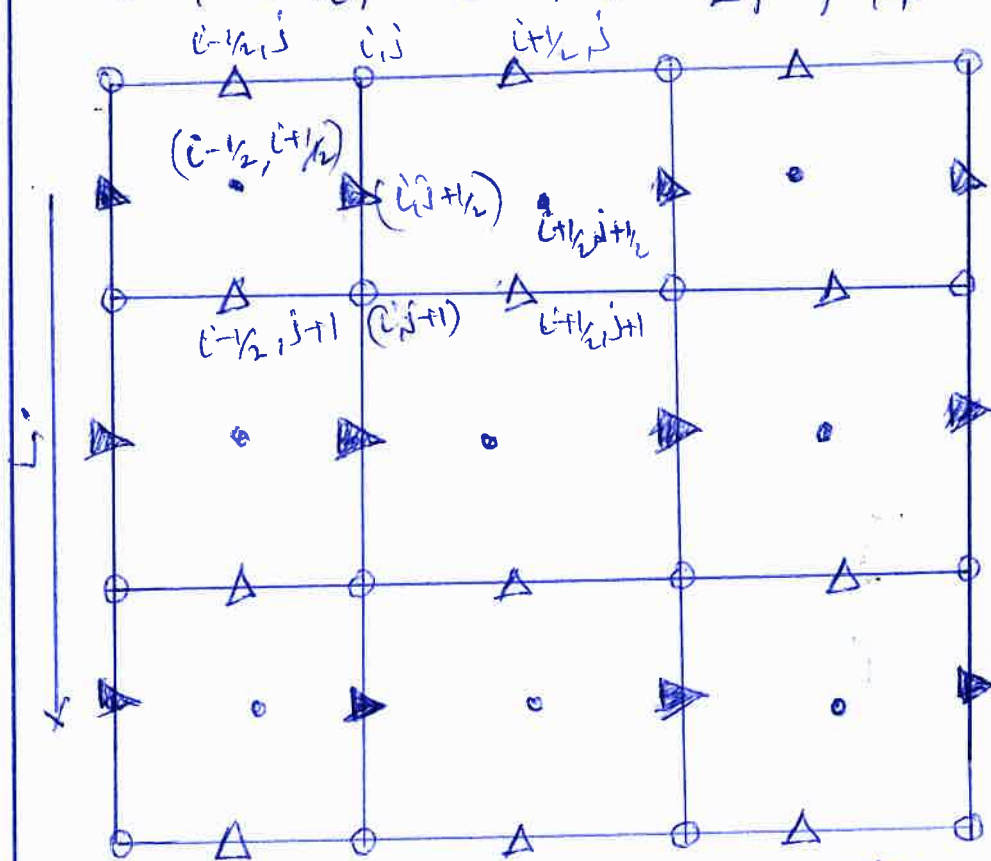 i-1/2, j i, j i+1/2, j
(i-1/2, i+1/2)
(i, j+1/2)
i+1/2, j+1/2
i-1/2, j+1 (i, j+1) i+1/2, j+1
j